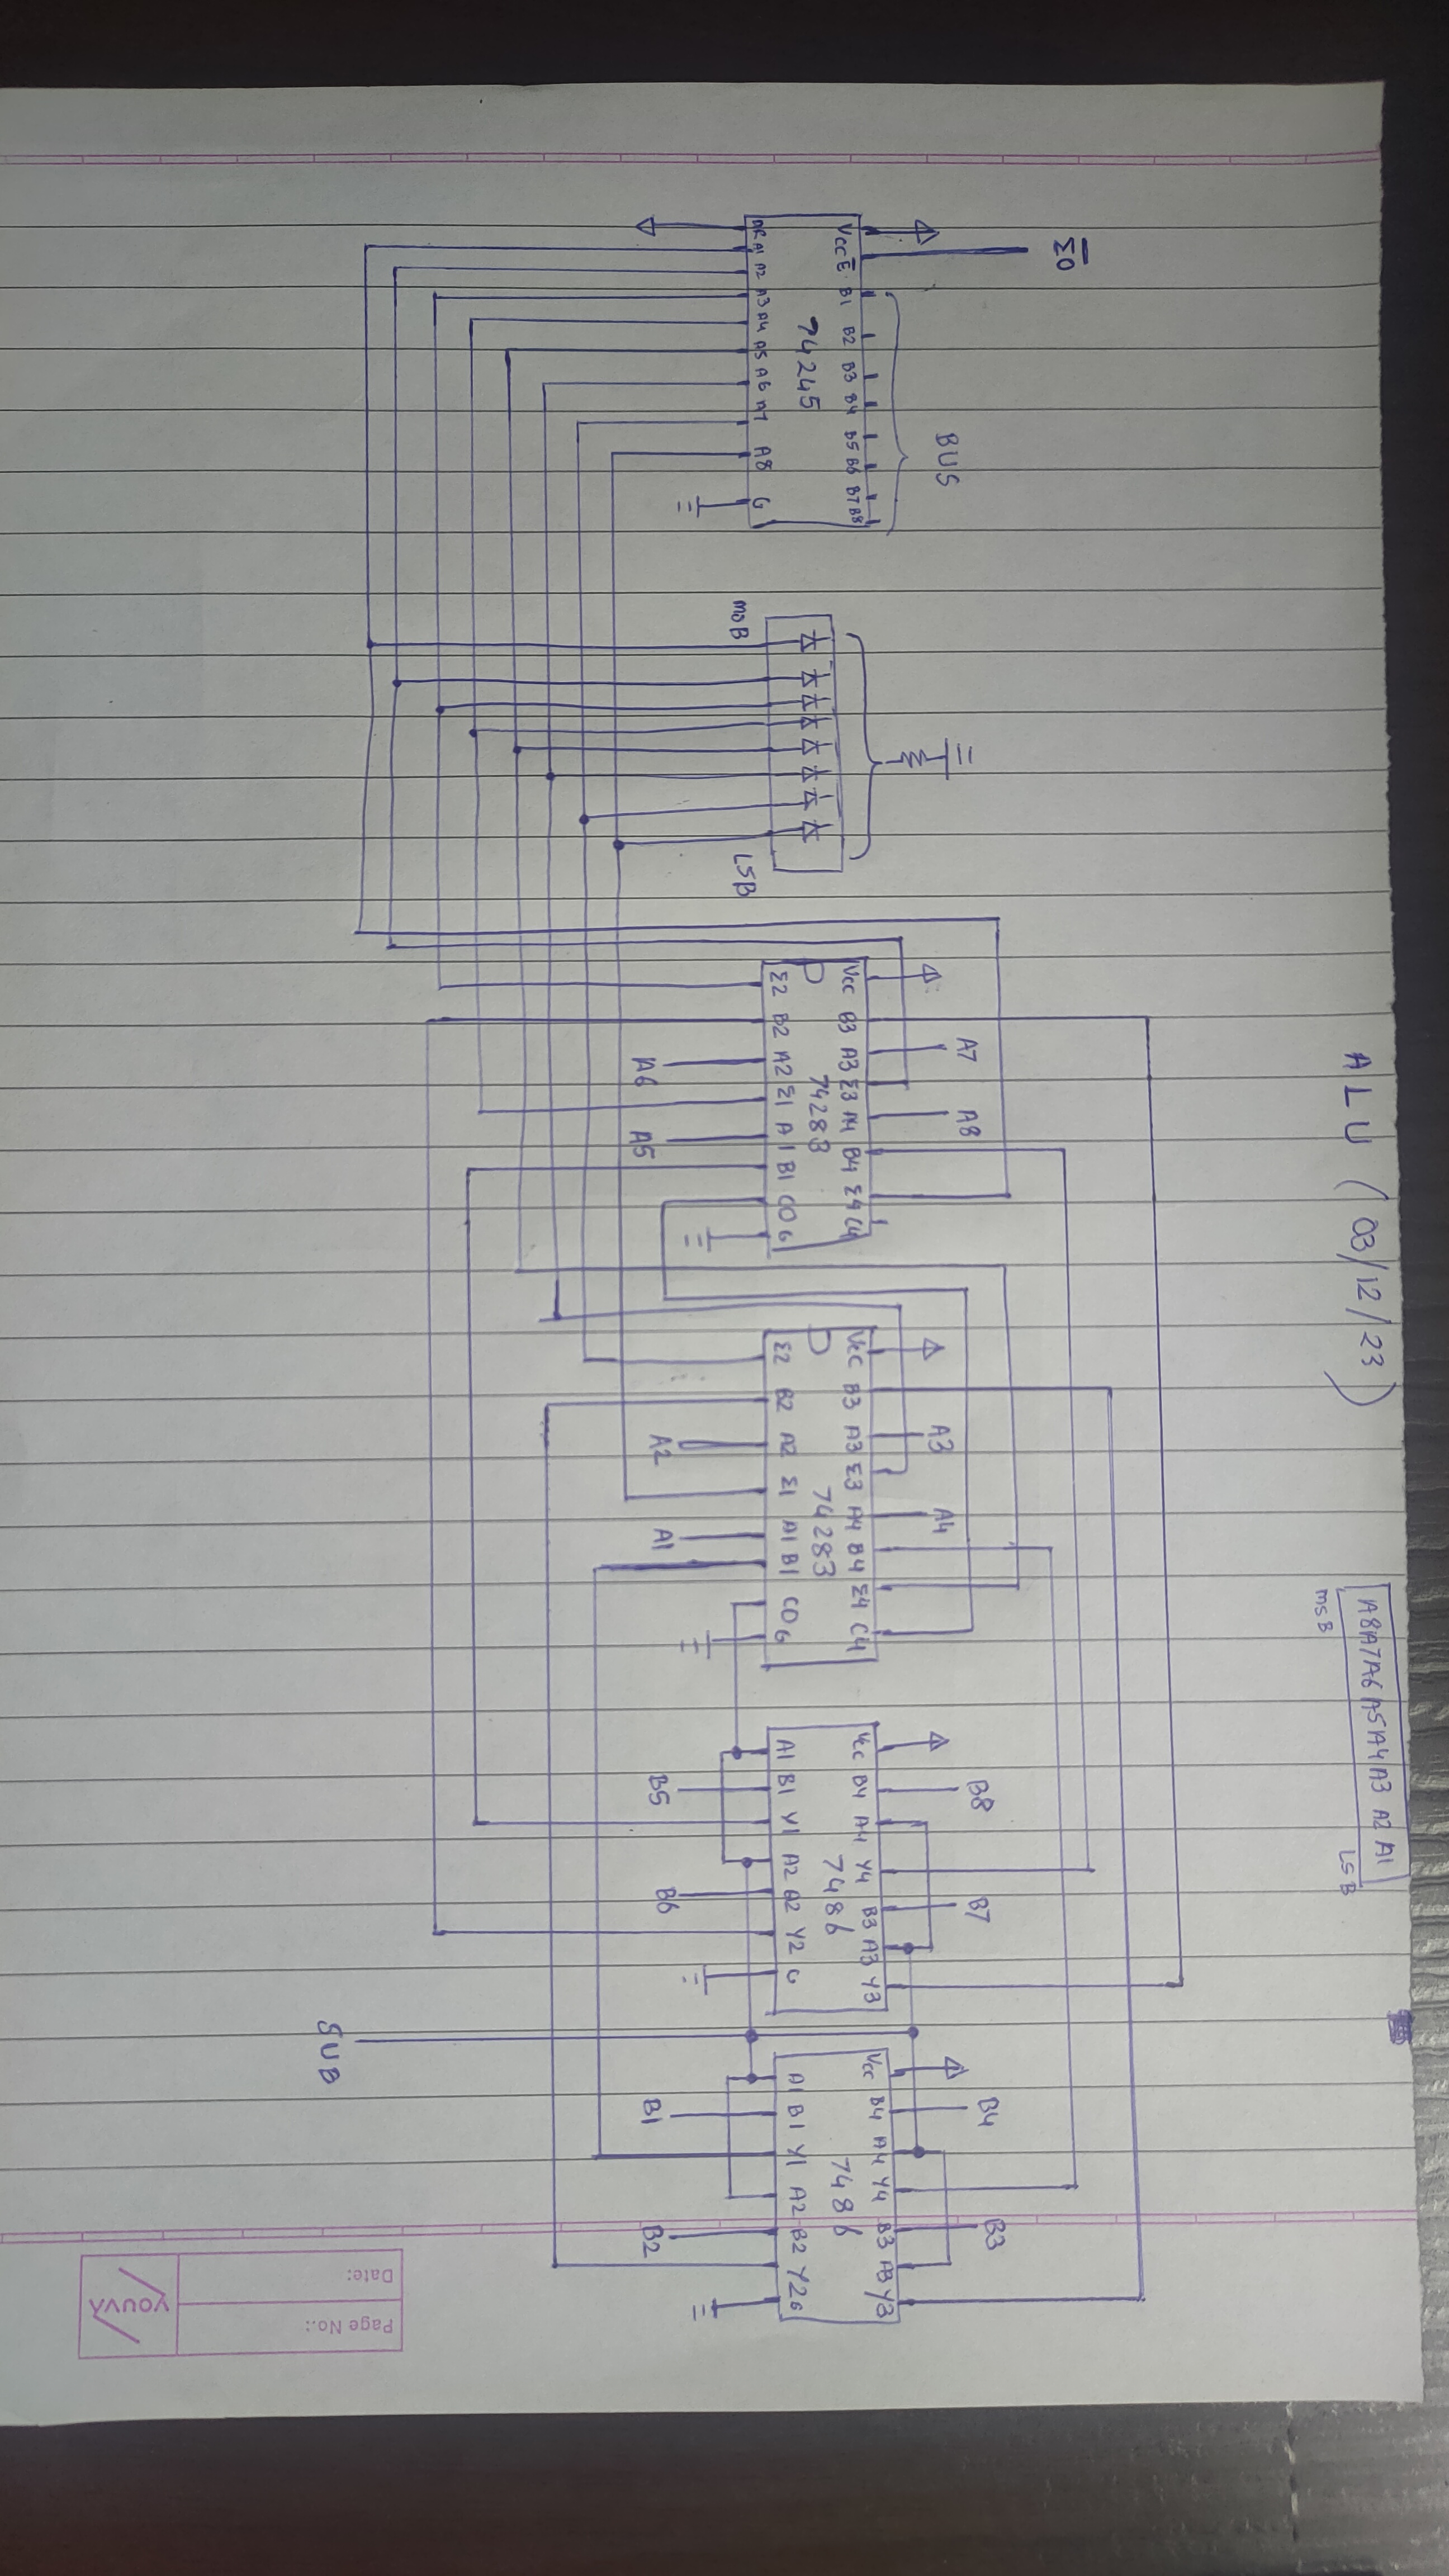 ALU (03/12/23)
A8A7A6A5A4A3 A2 A1
LSB
MSB
Σ0
BUS
A7 A8
A3 A4
B8 B7
B4 B3
Vcc E B1 B2 B3 B4 B5 B6 B7 B8
74245
A1 A2 A3 A4 A5 A6 A7 A8 G
MSB
LSB
Vcc B3 A3 Σ3 A4 B4 Σ4 C4
74283
Σ2 B2 A2 Σ1 A1 B1 C0 G
A6 A5
Vcc B3 A3 Σ3 A4 B4 Σ4 C4
74283
Σ2 B2 A2 Σ1 A1 B1 C0 G
A2 A1
Vcc B4 A4 Y4 B3 A3 Y3
7486
A1 B1 Y1 A2 B2 Y2 G
B5 B6
Vcc B4 A4 Y4 B3 A3 Y3
7486
A1 B1 Y1 A2 B2 Y2 G
B1 B2
SUB
Page No.:
Date:
YOUVA